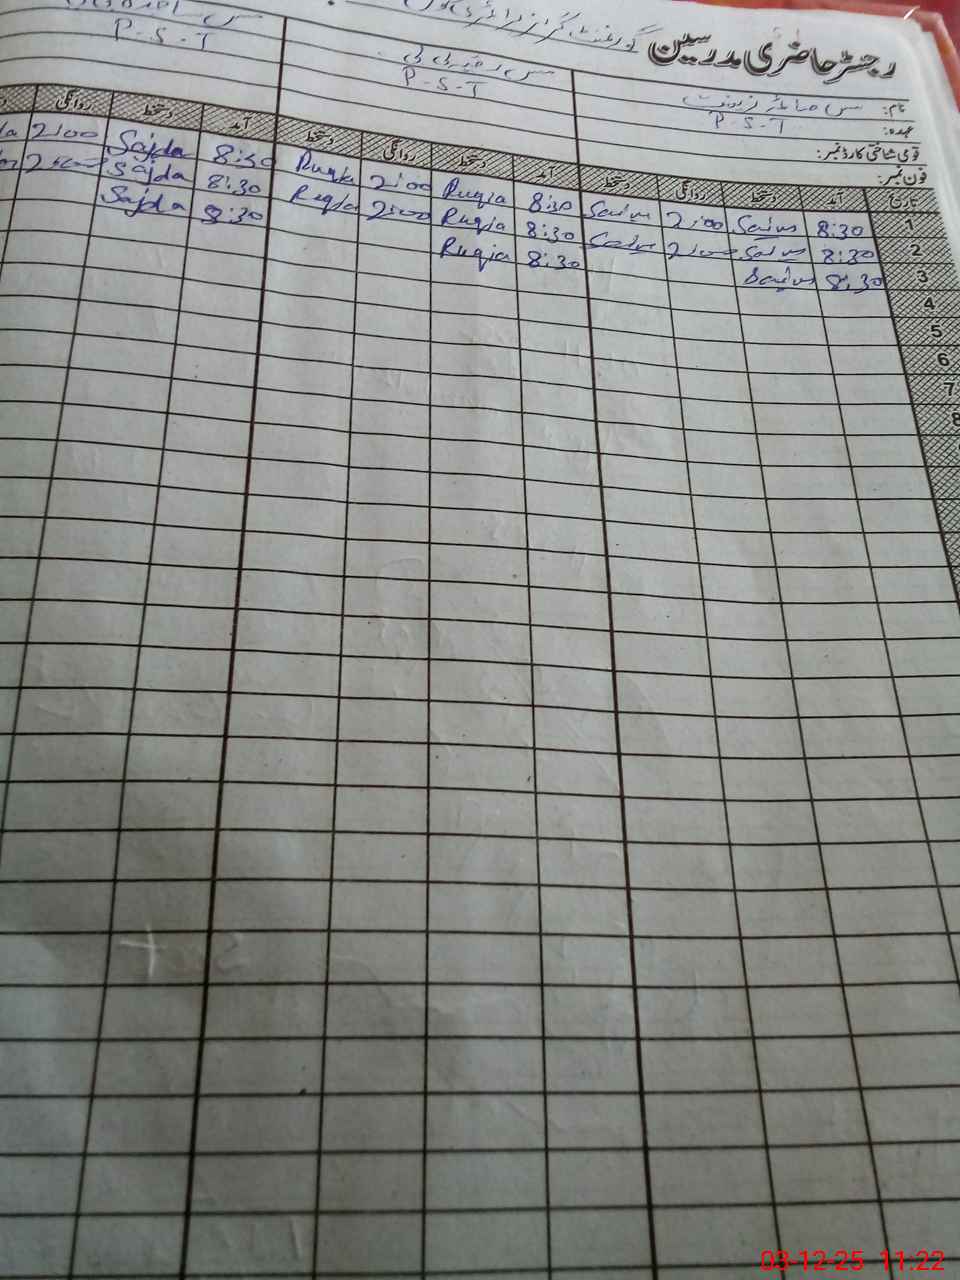 رجسٹر حاضری مدرسین گورنمنٹ گرلز پرائمری
نام: مس صائمہ زینت
مس رقیہ بی بی
عہدہ: P-S-T
P-S-T
P-S-T
قومی شناختی کارڈ نمبر:
فون نمبر:
تاریخ آمد دستخط روانگی دستخط آمد دستخط روانگی دستخط آمد دستخط روانگی
1 8:30 2:00 8:30 Ruqia 2:00 8:30 Sajda 2:00
2 8:30 8:30 Ruqia 2:00 8:30 Sajda
3 8:30 8:30 Ruqia 8:30 Sajda
4
5
6
7
8
03-12-25 11:22